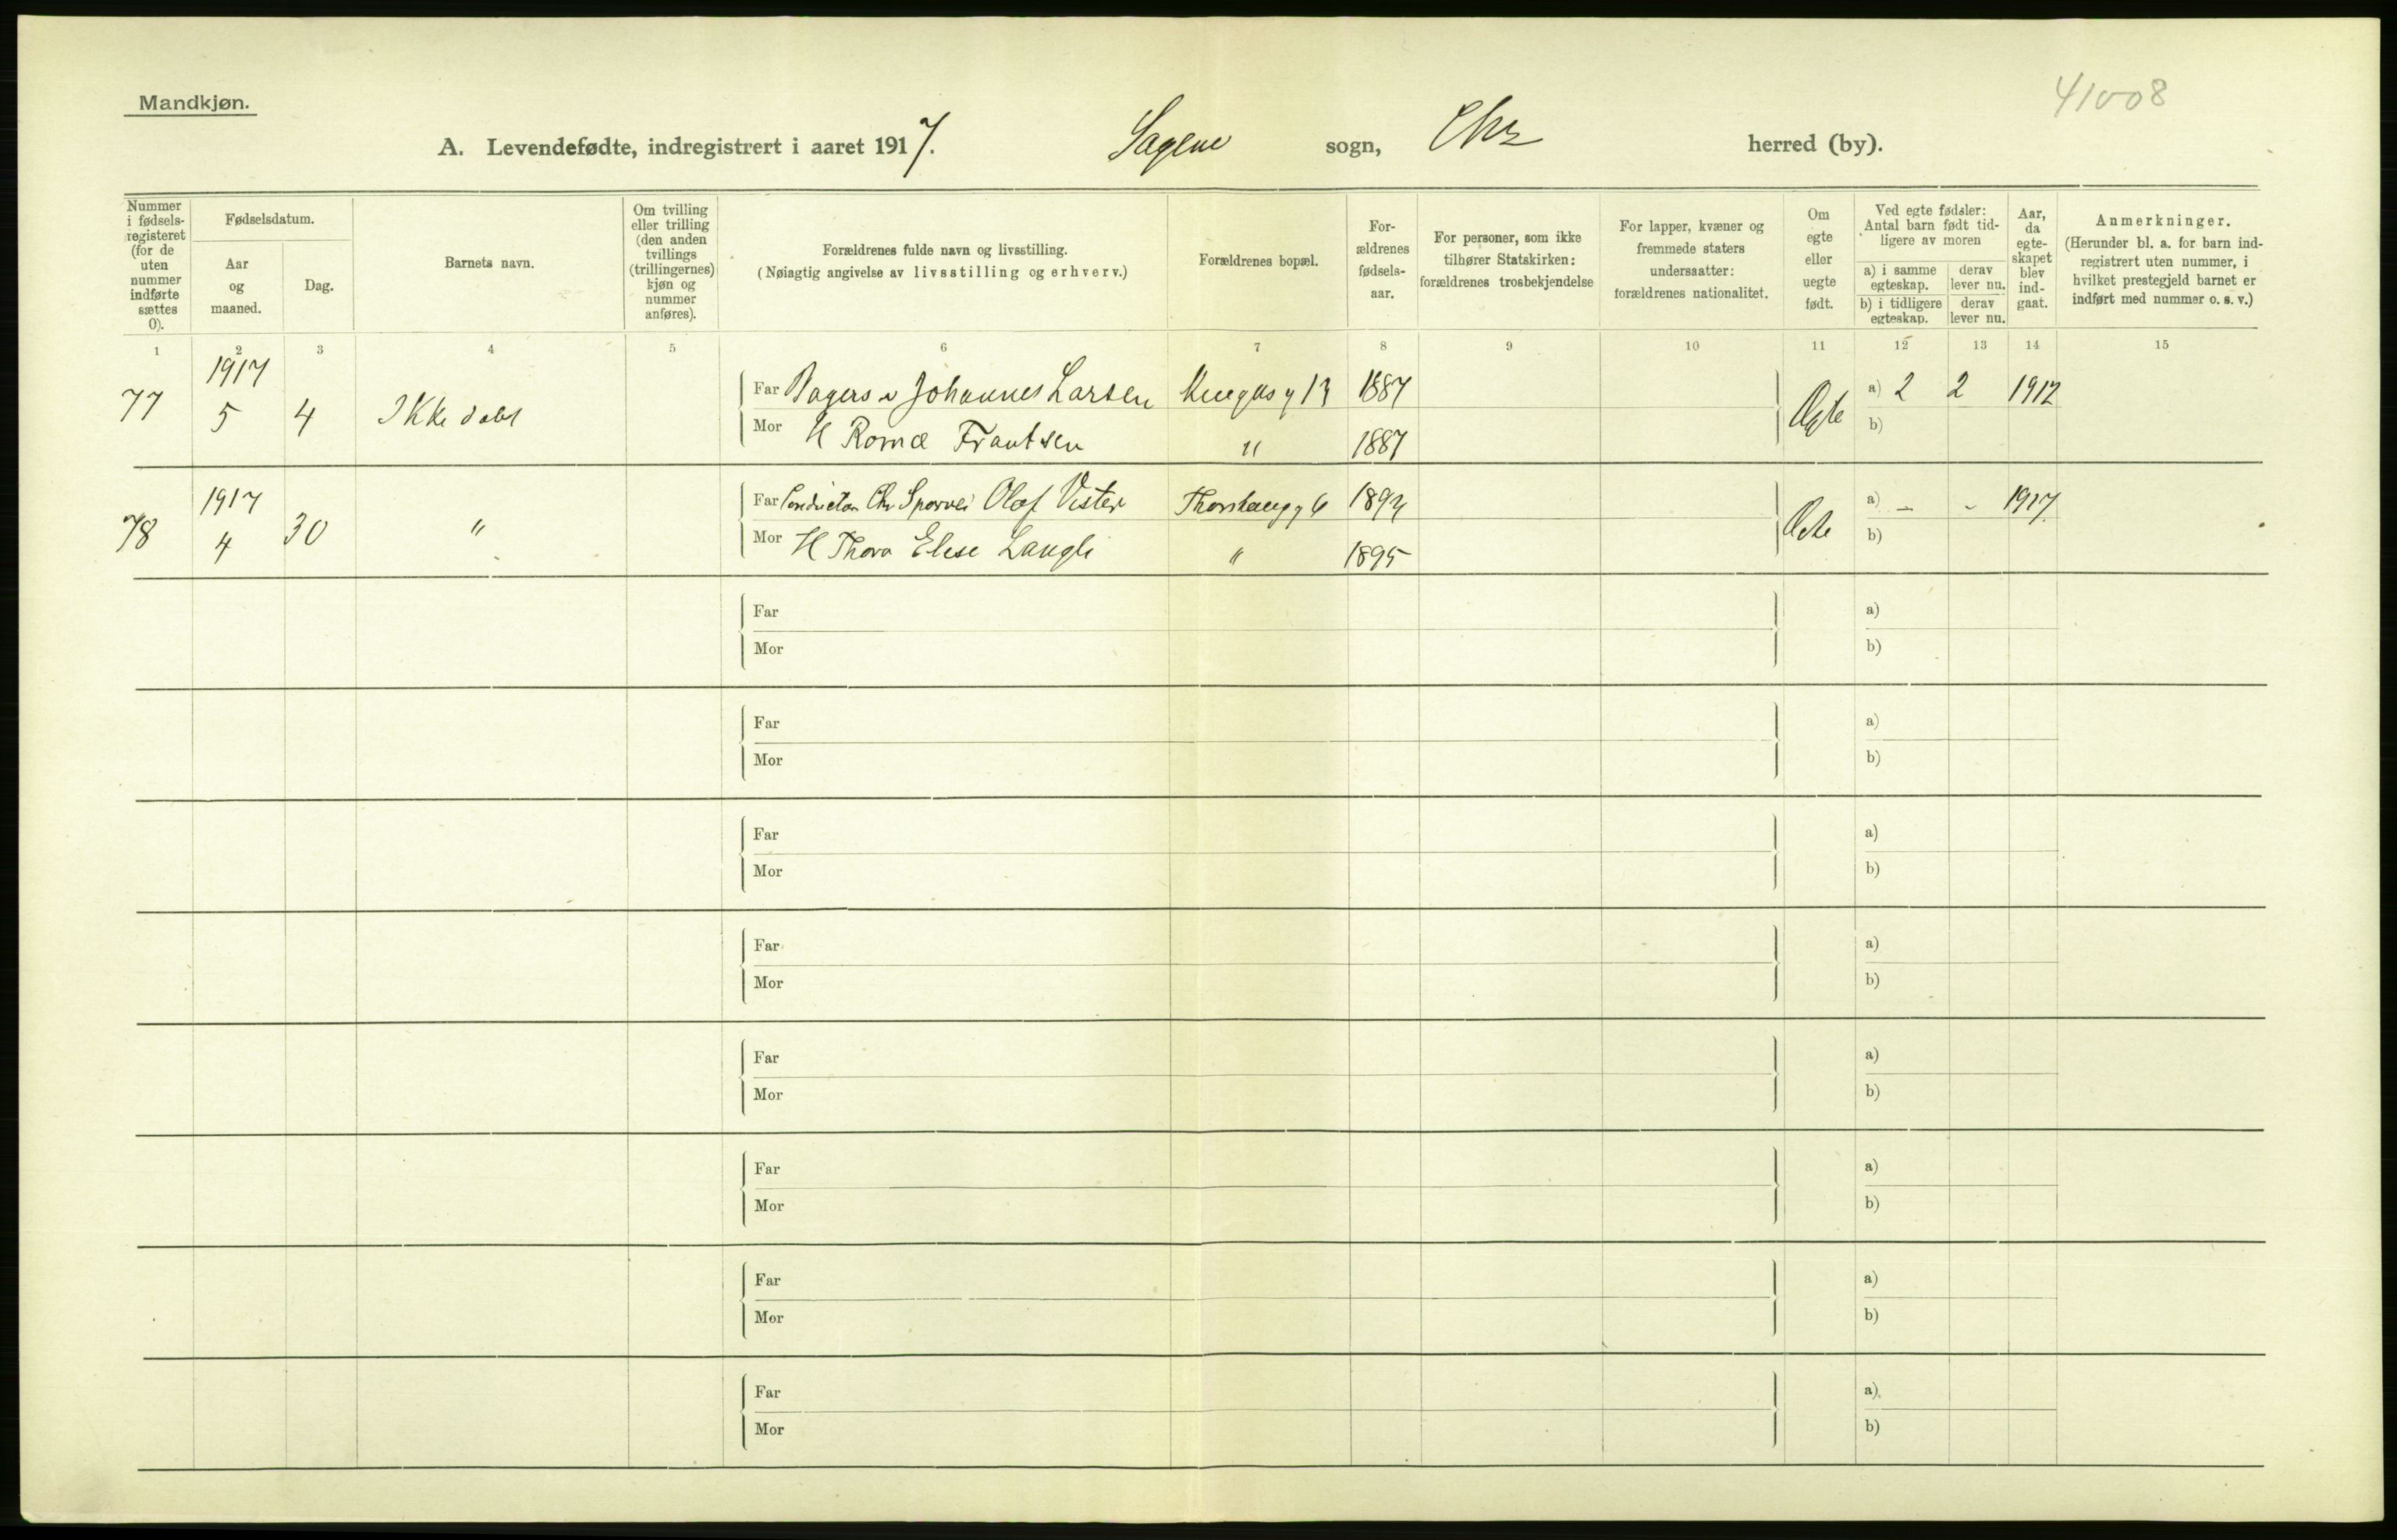 Mandkjøn.
41008
A. Levendefødte, indregistrert i aaret 1917. Sagene sogn, Chr herred (by).
Nummer i fødsels-registeret (for de uten nummer indførte sættes 0).
Fødselsdatum.
Aar og maaned.
Dag.
Barnets navn.
Om tvilling eller trilling (den anden tvillings (trillingernes) kjøn og nummer anføres).
Forældrenes fulde navn og livsstilling.
(Nøiagtig angivelse av livsstilling og erhverv.)
Forældrenes bopæl.
For-ældrenes fødsels-aar.
For personer, som ikke tilhører Statskirken: forældrenes trosbekjendelse
For lapper, kvæner og fremmede staters undersaatter: forældrenes nationalitet.
Om egte eller uegte født.
Ved egte fødsler: Antal barn født tid-ligere av moren
a) i samme egteskap.
derav lever nu.
b) i tidligere egteskap.
derav lever nu.
Aar, da egte-skapet blev ind-gaat.
Anmerkninger.
(Herunder bl. a. for barn ind-registrert uten nummer, i hvilket prestegjeld barnet er indført med nummer o. s. v.)
1 2 3 4 5 6 7 8 9 10 11 12 13 14 15
77 1917 5 4 Ikke døbt
Far Johannes Larsen 13 1887 Egte a) 2 2 1912
Mor H Frantsen " 1887 b)
78 1917 4 30 "
Far Conductør Chr Sporvei Olaf Vister Thorshaugg 6 a) - - 1917
Mor H Thora Elise Langli " 1895 b)
Far a)
Mor b)
Far a)
Mor b)
Far a)
Mor b)
Far a)
Mor b)
Far a)
Mor b)
Far a)
Mor b)
Far a)
Mor b)
Far a)
Mor b)